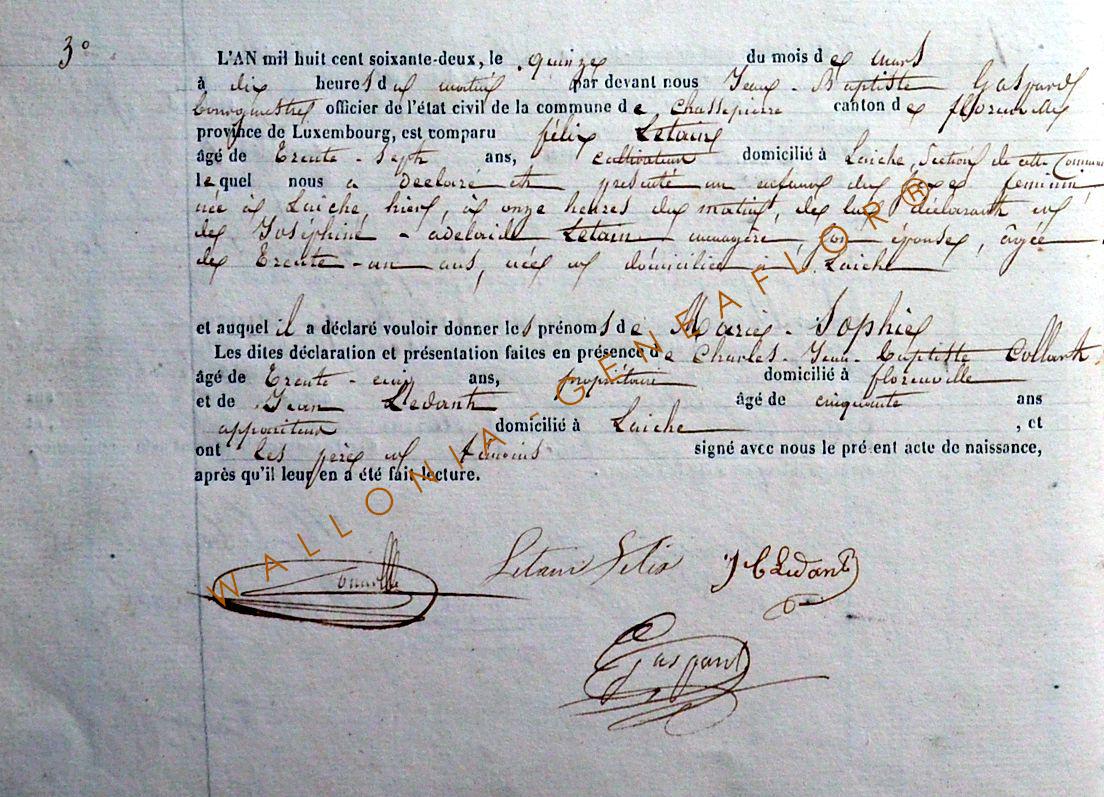 3°
L'AN mil huit cent soixante-deux, le quinze du mois de mars
à dix heures du matin par devant nous Jean-Baptiste Gaspard
bourgmestre officier de l'état civil de la commune de Chassepierre canton de florenville
province de Luxembourg, est comparu félix Letain
âgé de Trente-Sept ans, cultivateur domicilié à Laiche, Section de cette Commune
lequel nous a déclaré et présenté un enfant du sexe féminin
née à Laiche, hier, à onze heures du matin, de lui déclarant et
de Joséphine-adelaide Letain, ménagère, son épouse, âgée
de Trente-un ans, née et domiciliée à Laiche
et auquel il a déclaré vouloir donner les prénoms de Marie-Sophie
Les dites déclaration et présentation faites en présence de Charles-Jean-baptiste
âgé de Trente-cinq ans, propriétaire domicilié à florenville
et de Jean Ledant âgé de cinquante ans
appariteur domicilié à Laiche, et
ont les père et témoins signé avec nous le présent acte de naissance,
après qu'il leur en a été fait lecture.
Letain Félix
J B Ledant
Gaspard
WALLONIA-GENEAFLOR®